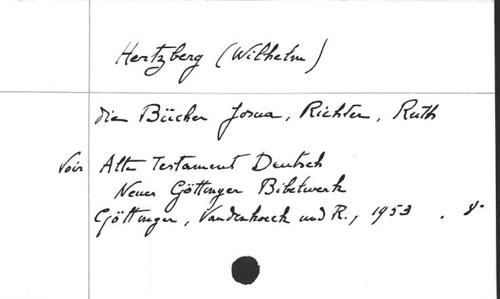 Hertzberg (Wilhelm)
die Bücher Josua, Richter, Ruth
Voir Alte Testament Deutsch
Neues Göttinger Bibelwerk
Göttingen, Vandenhoeck und R., 1953. 8°